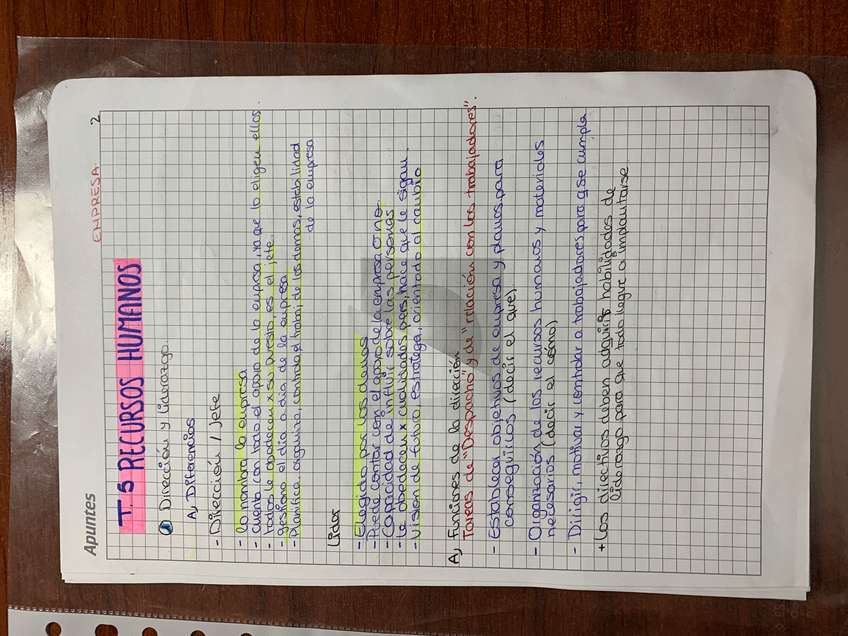 Apuntes
EMPRESA
2
T.5 RECURSOS HUMANOS
1 Dirección y liderazgo.
A) Diferencias
- Dirección / Jefe
- Lo nombra la empresa
- Cuenta con todo el apoyo de la empresa, ya que lo eligen ellos.
- Todos le obedecen x su puesto, es el jefe.
- gestiona el día a día de la empresa
- Planifica, organiza, controla el trabaj, de los demas, estabilidad
de la empresa
Lider
- Elegido por los demas
- Puede contar con el apoyo de la empresa o no.
- Capacidad de influir sobre las personas
- le obedecen x cualidades pers, hace que le sigan.
- Visión de futuro, estratega, orientado al cambio
A) Funciones de la dirección
Tareas de "Despacho" y de "relación con los trabajadores".
- Establecer objetivos de empresa y planes para
conseguirlos (decir el que)
- Organización de los recursos humanos y materiales
necesarios (decir el cómo)
- Dirigir, motivar y controlar a trabajadores para q se cumpla
+ Los directivos deben adquirir habilidades de
liderazgo para que todo llegue a implantarse.